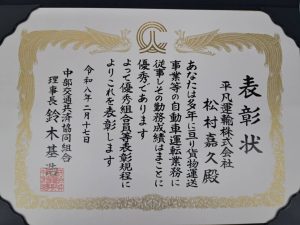 表彰状
平凡運輸株式会社
松村嘉久殿
あなたは多年に亘り貨物運送
事業等の自動車運転業務に
従事しその勤務成績はまことに
優秀であります
よって優秀組合員等表彰規程に
よりこれを表彰します
令和八年二月十七日
中部交通共済協同組合
理事長 鈴木基